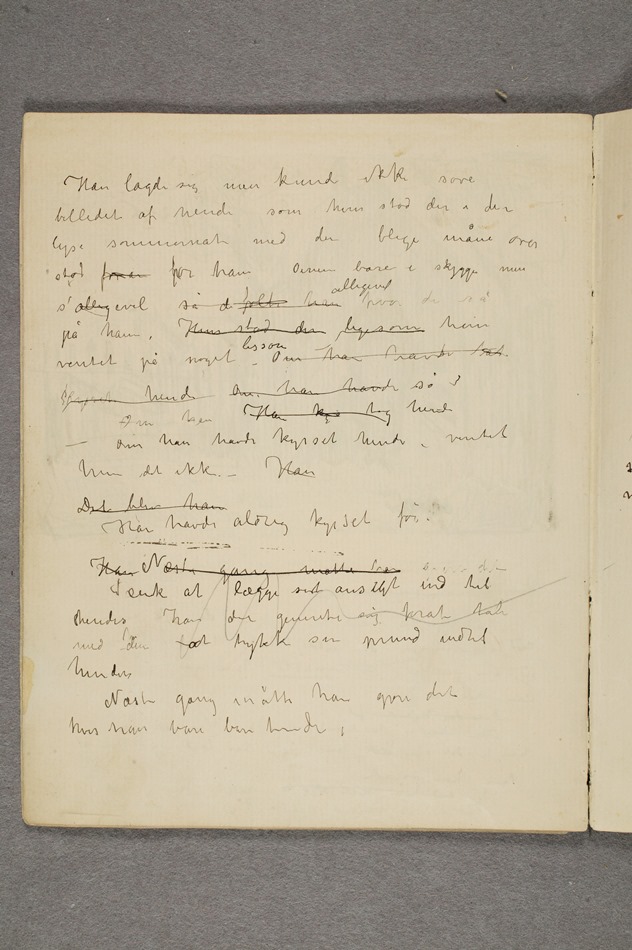 Han lagde sig men kunde ikke sove
billedet af hende som hun stod der i den
lyse sommernat med den blege måne over
stod foran for ham Øinene bare i skygge men
s' alligevel så de følte han alligevel hvor de så
på ham. Hun stod der ligesom hun
ventet på noget ligesom – Om han havde
kysset hende Om han havde så?
Om han Han kys tog hende
– Om han havde kysset hende, ventet
hun det ikke. – Han
Det blev ham
Han havde aldrig kysset før.
Han Næste gang måtte han
Tænk at lægge sit ansigt ind til
hendes Han der gjemte sig
med den at trykke sin mund indtil
hendes
Næste gang måtte han gøre det
hvis han bare ber hende;